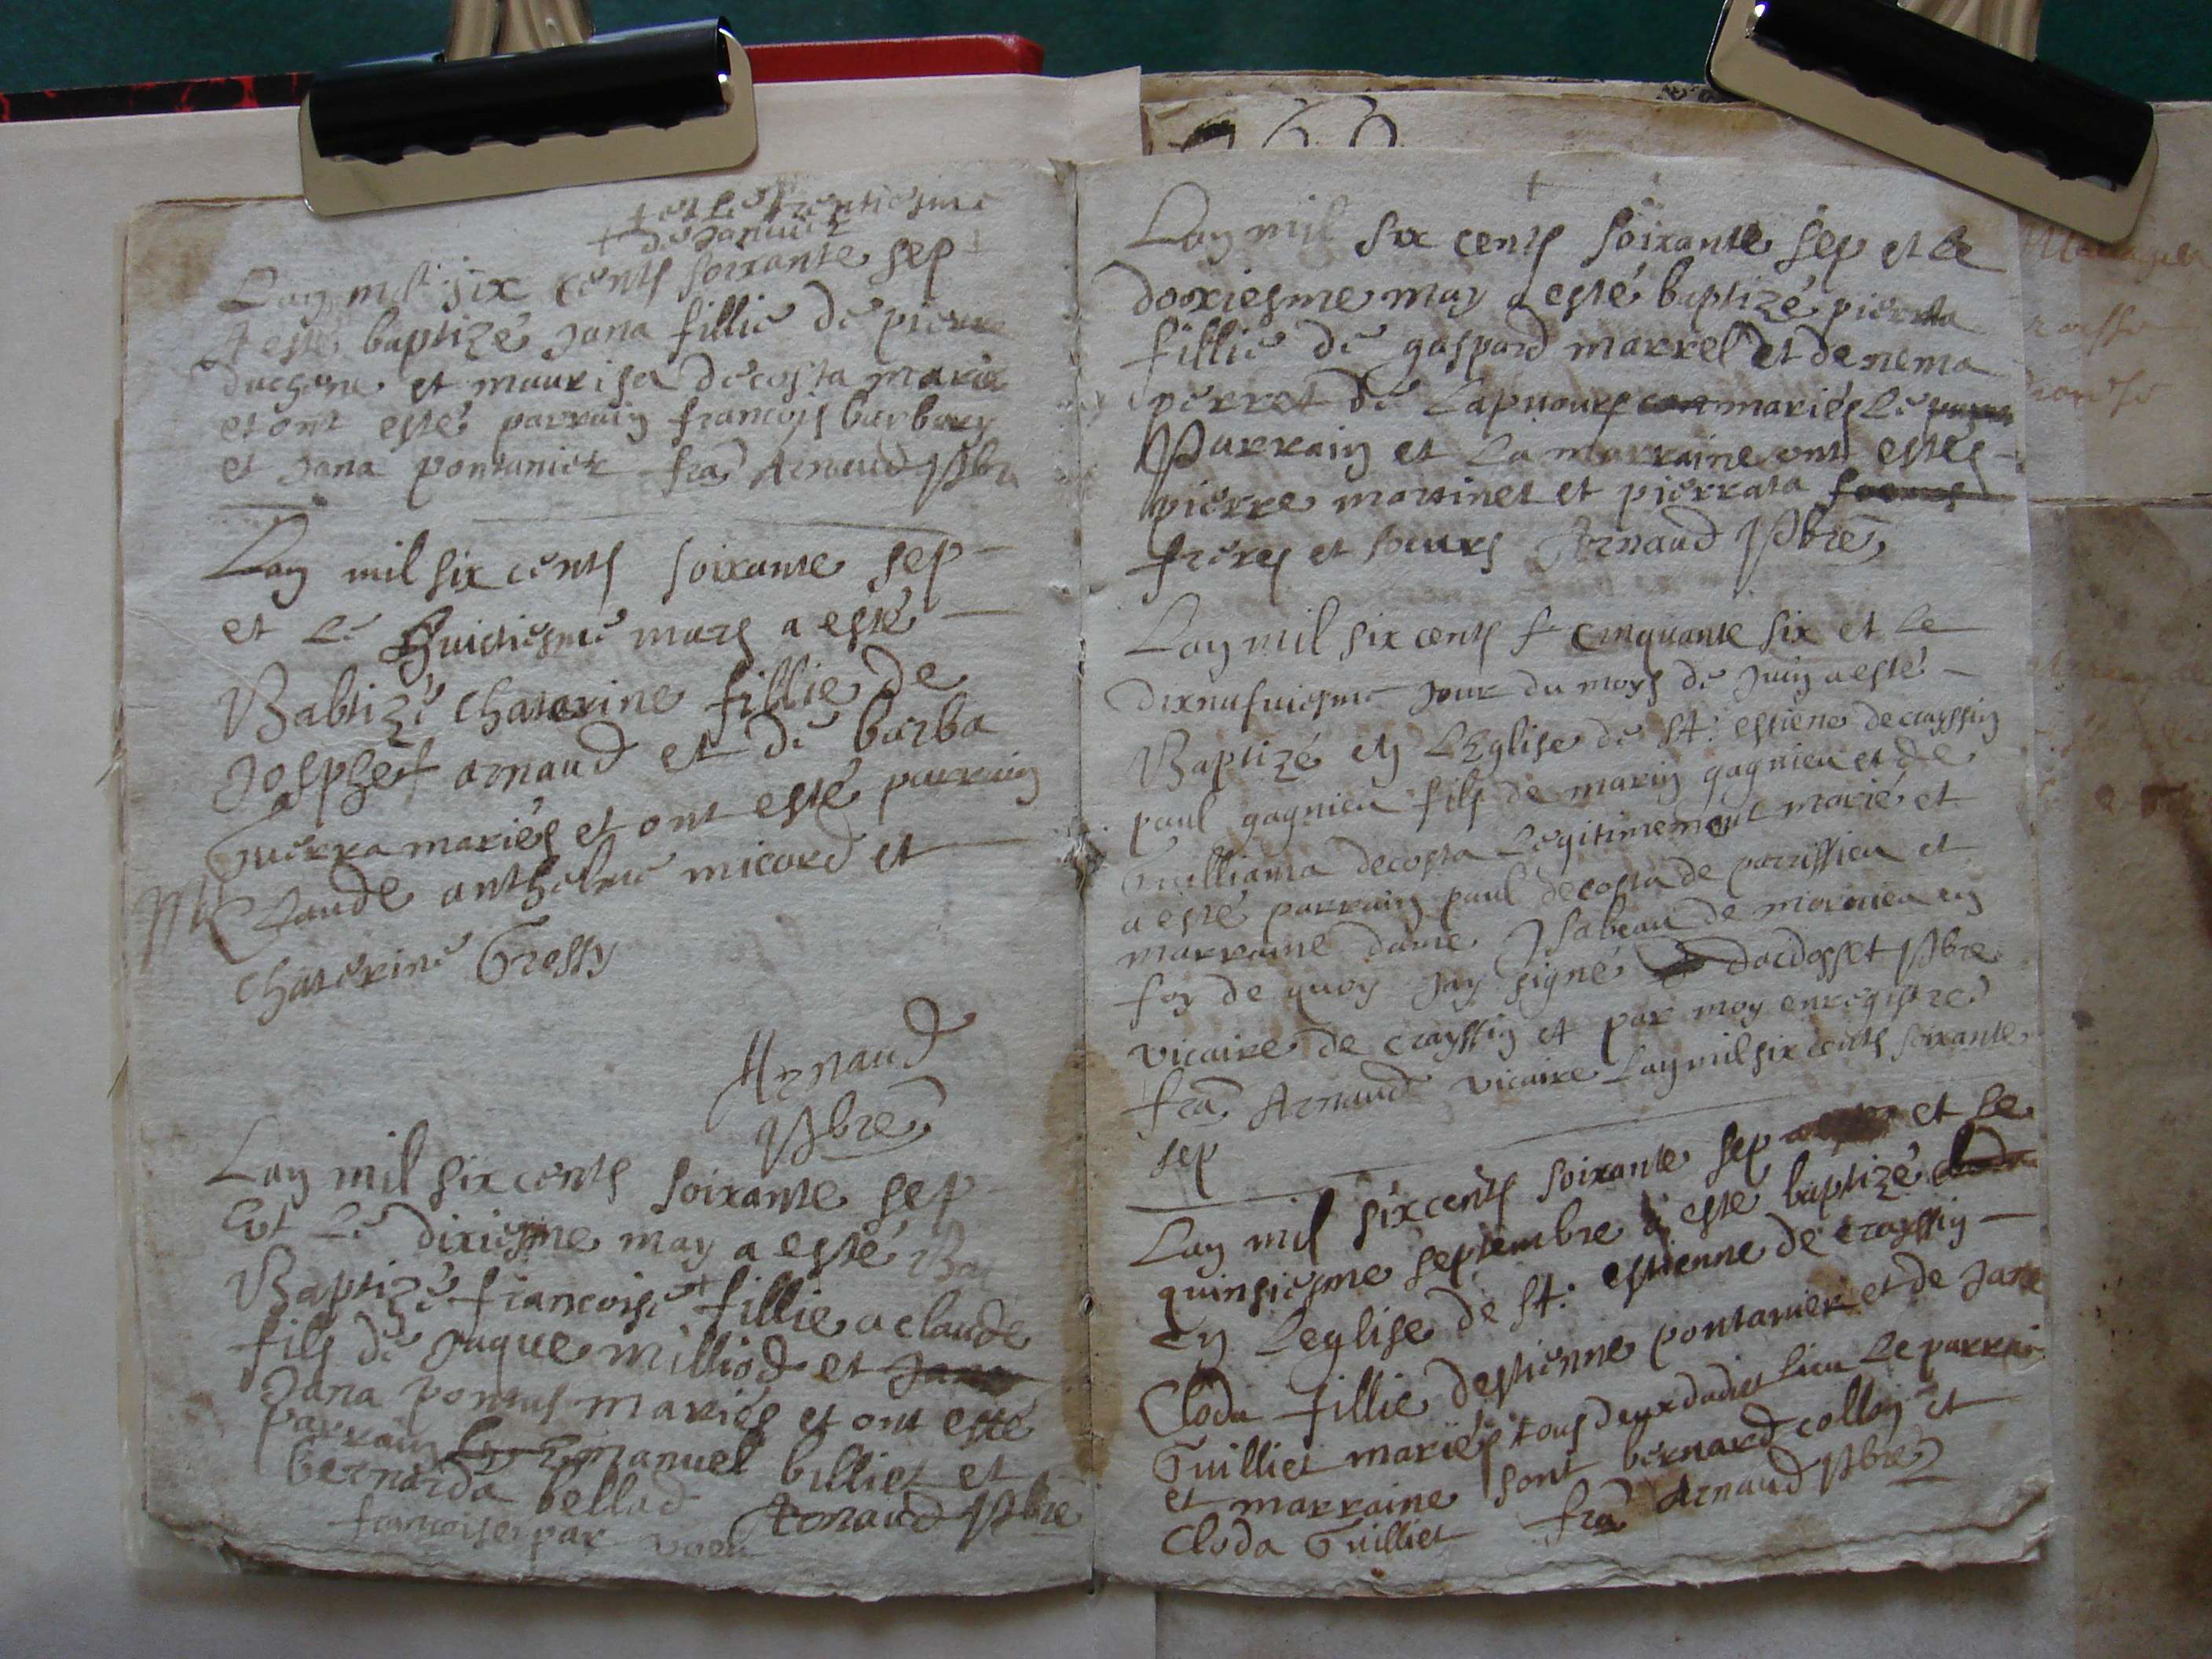 + et le trentiesme
+ de Janvier
Lan mil six cents soixante sep +
A esté baptizé Jana fillie de pierre
duchene et maurisa decosta mariés
et ont esté parrain francois barbary
et Jana pontanier fra Arnaud Pbre
Lan mil six cents soixante sep
et le huictiesme mars a esté
Babtizé chatarine fillie de
Josphet arnaud et de barba
Guerra mariés et ont esté parrain
Mr Claude anthelme micord et
chaterine Grossy
Arnaud
Pbre
Lan mil six cents soixante sep
Et le dixiesme may a esté
Baptizé francoise + fillie a claude
fils de Jaque milliod et
Jana pontus mariés et ont esté
parrain Emanuel billiet et
bernarda bellod Arnaud Pbre
francoise par voeu
Lan mil six cents soixante sep et le
dooxiesme may a esté baptizé pierrata
fillie de gaspard marrel et de nema
perret de Lapnours mariés Le
Parrain et La marraine ont estés
pierre martinet et pierrata
freres et soeurs Arnaud Pbre
Lan mil six cents f cinquante six et le
dixnufviesme Jour du moys de Juin a esté
Baptizé en L'Eglise de St: estiene de crayssin
paul gagnieu fils de marin gagnieu et de
Guilliama decosta Legitimement marié et
a esté parrain paul decosta de parrissieu et
marraine dame Isabeau de mornieu en
foy de quoy Jay signé docdosset Pbre
vicaire de crayssin et par moy enregistré
fra Arnaud vicaire Lan mil six cents soixante
sep
Lan mil six cents soixante sep et le
quinsiesme septembre a este baptizé
En Leglise de St: estienne de crayssin
Cloda fillie destienne pontanier et de Jane
Guilliet mariés tous deux dudit lieu Le parrain
et marraine sont bernard collon et
Cloda Guilliet fra Arnaud Pbre